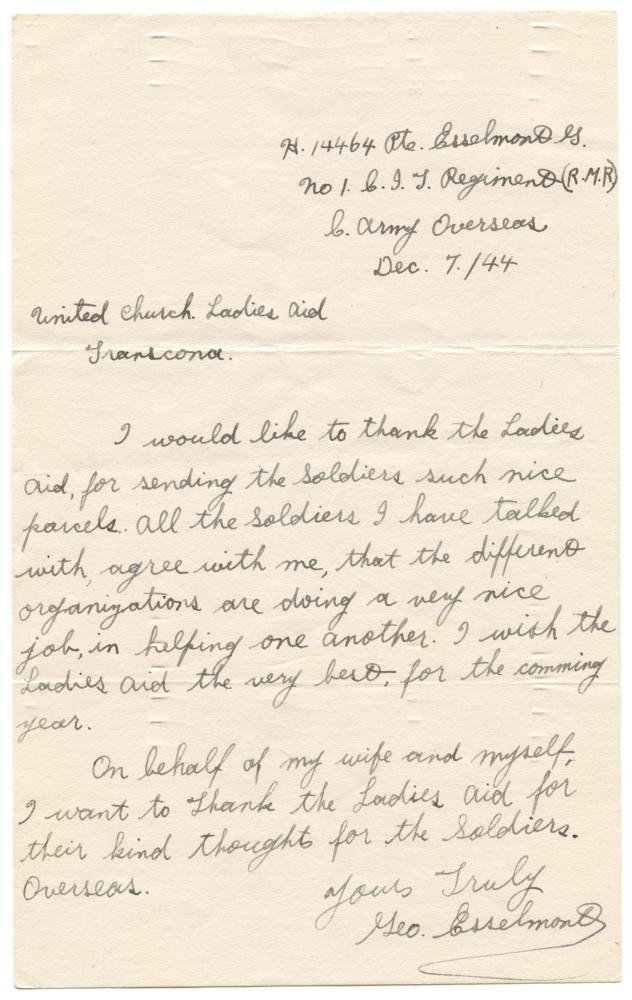 H. 14464 Pte. Esselmont G.
No 1. C. I. T. Regiment (R.M.R)
C. Army Overseas
Dec. 7./44
United Church. Ladies Aid
Transcona.
I would like to thank the Ladies
Aid, for sending the Soldiers such nice
parcels. All the Soldiers I have talked
with, agree with me, that the different
organizations are doing a very nice
job, in helping one another. I wish the
Ladies Aid the very best, for the comming
year.
On behalf of my wife and myself,
I want to Thank the Ladies Aid for
their kind thoughts for the Soldiers.
Overseas.
Yours Truly
Geo. Esselmont